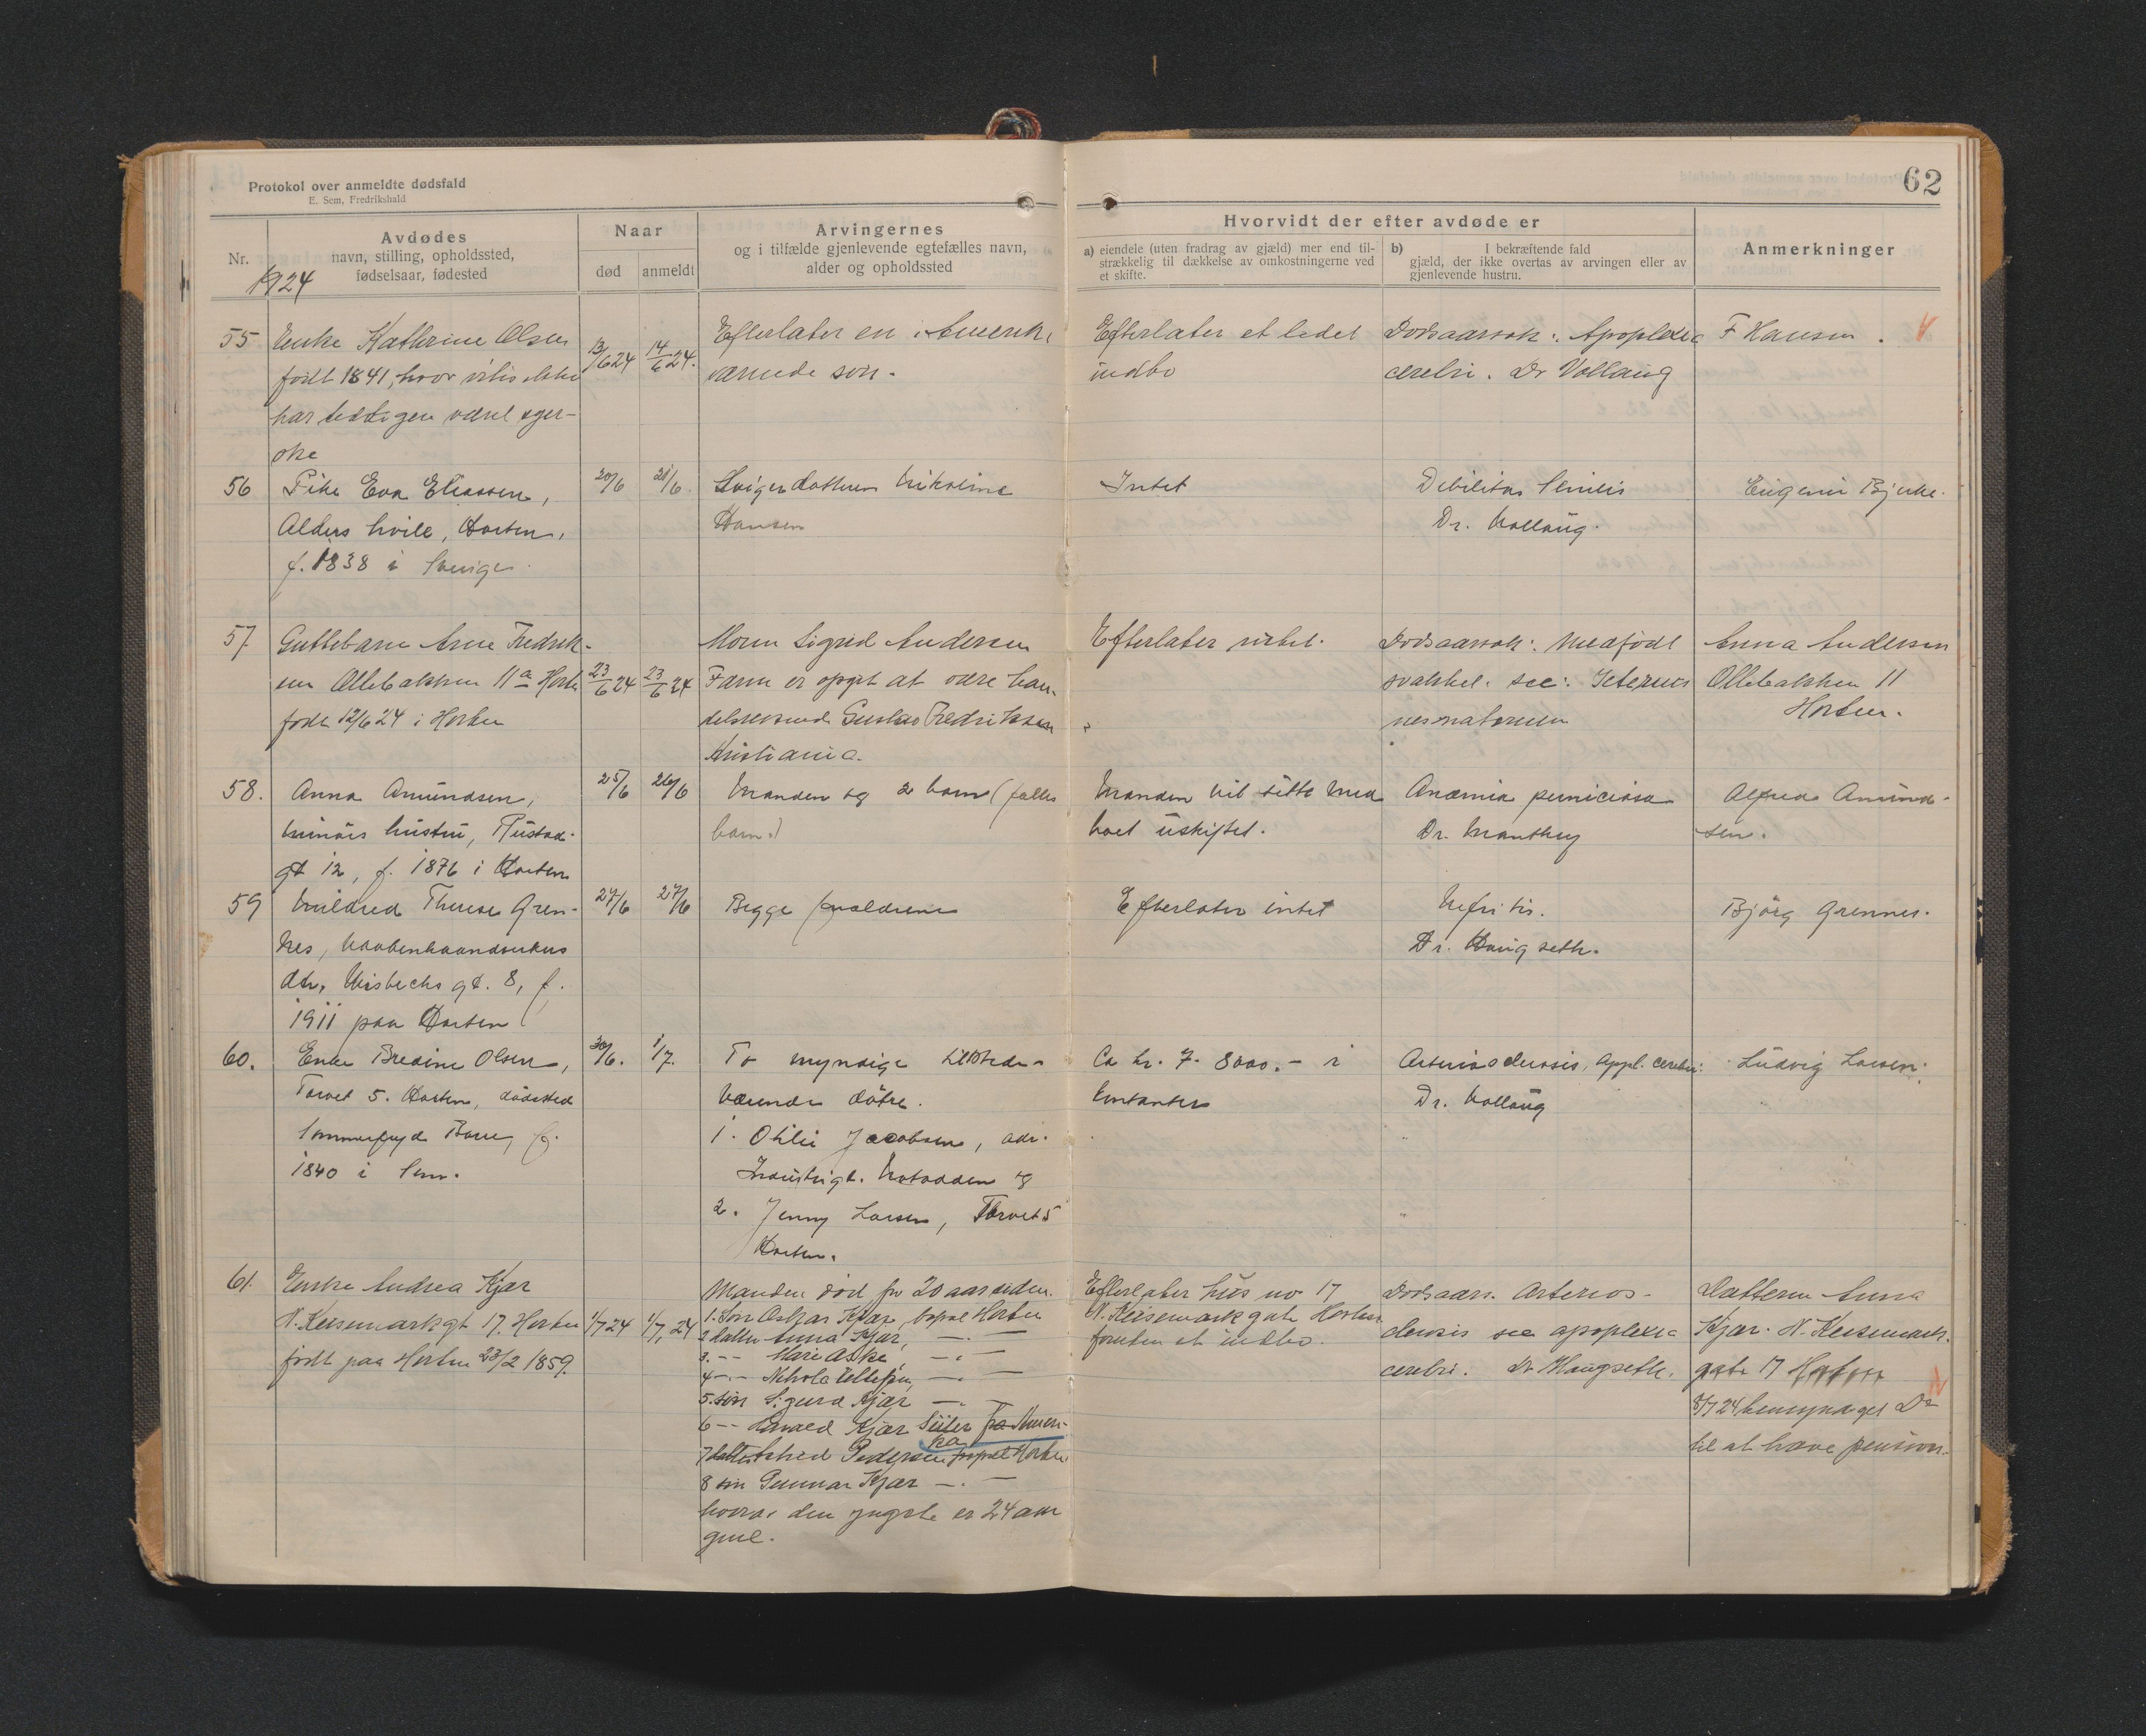 Protokol over anmeldte dødsfald
E. Sem, Fredrikshald
62
Nr.
Avdødes
navn, stilling, opholdssted,
fødselsaar, fødested
1924
Naar
død
anmeldt
Arvingernes
og i tilfælde gjenlevende egtefælles navn,
alder og opholdssted
Hvorvidt der efter avdøde er
a) eiendele (uten fradrag av gjæld) mer end til-
strækkelig til dækkelse av omkostningerne ved
et skifte.
b) I bekræftende fald
gjæld, der ikke overtas av arvingen eller av
gjenlevende hustru.
Anmerkninger
55
Enke Kathrine Olsen
født 1841, hvor vites ikke
har været
13/6 24
14/6 24.
Efterlater en i Amerika
værende søn.
Efterlater et lidet
indbo
Dødsaarsak: Apoplexia
cerebri. Dr Vollaug
F Hansen.
56
Pike Eva Eliassen,
Alders hvile, Horten,
f. 1838 i Sverige.
20/6
21/6.
Svigerdatteren Nikoline
Hansen
Intet
Debilitas Senilis
Dr. Vollaug.
Eugenie Bjerke.
57
Guttebarn Arne Fredrik-
sen Ollebakken 11a Horten
født 12/6 24 i Horten
23/6 24
23/6 24
Moren Sigrid Andersen
Faren er opgit at være han-
delsreisende Gustav Fredriksen
Kristiania.
Efterlater intet.
Dødsaarsak: Medfødt
svakhet. sec: Icterus
neonatorum
Anna Andersen
Ollebakken 11
Horten.
58.
Anna Amundsen,
minørs hustru, Rustad-
gt 12, f. 1876 i Horten
25/6
26/6
Manden og 2 barn (fælles
barn)
Manden vil sitte med
boet uskiftet.
Anæmia perniciosa
Dr. Manthey
Alfred Amund-
sen.
59
Mildred Therese Gren-
nes, vaabenhaandverkers
dtr. Misbechs gt. 8, f.
1911 paa Horten
27/6
27/6
Begge forældrene
Efterlater intet
Nefritis.
Dr. Haugseth.
Bjørg Grennes.
60.
Enke Bredine Olsen,
Torvet 5. Horten, dødssted
Sommerfryd Borre, f.
1840 i Sem.
30/6.
1/7.
To myndige tilstede-
værende døtre.
1. Otilie Jacobsen, adr.
Industrigt. Notodden og
2. Jenny Larsen, Torvet 5
Horten.
Ca kr. 7-8000.- i
kontanter
Arteriosclerosis, appl. cerebri.
Dr. Vollaug
Ludvig Larsen.
61.
Enke Andrea Kjær
N. Keisemarkgt 17. Horten
født paa Horten 23/2 1859.
1/7 24
1/7 24
Manden død for 20 aar siden.
1. Søn Oskar Kjær, bopæl Horten
2 datter Anna Kjær, —.—
3. -- Marie Aske, —.—
4 -.- Tellefsen, —.—
5. søn Sigurd Kjær —.—
6 -- Kjær Ameri-
ka
7 datter Pedersen bopæl Horten
8 søn Gunnar Kjær —.—
hvorav den yngste er 24 aar
gml.
Efterlater hus no 17
N. Keisemarkgate Horten
foruten et indbo.
Dødsaars. Arterios-
clerosis sec apoplexia
cerebri. Dr Haugseth.
Datteren Anna
Kjær. N. Keisemark-
gate 17 Horten
8/7 24 bemyndiget Do
til at hæve pension.